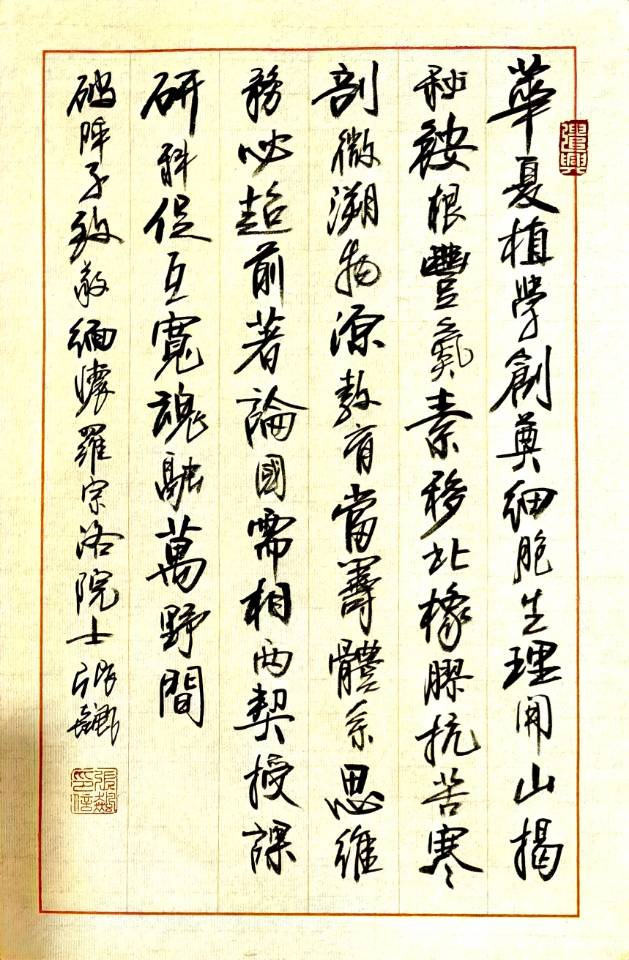 華夏植学創奠細胞生理開山揭
秘銨根豐氮素移北橡膠抗苦寒
剖微溯物源教育當籌體系思維
務必超前著論國需相两契授課
研科促互寬魂融萬野間
破陣子致敬緬懷羅宗洛院士張飆
張飆印信